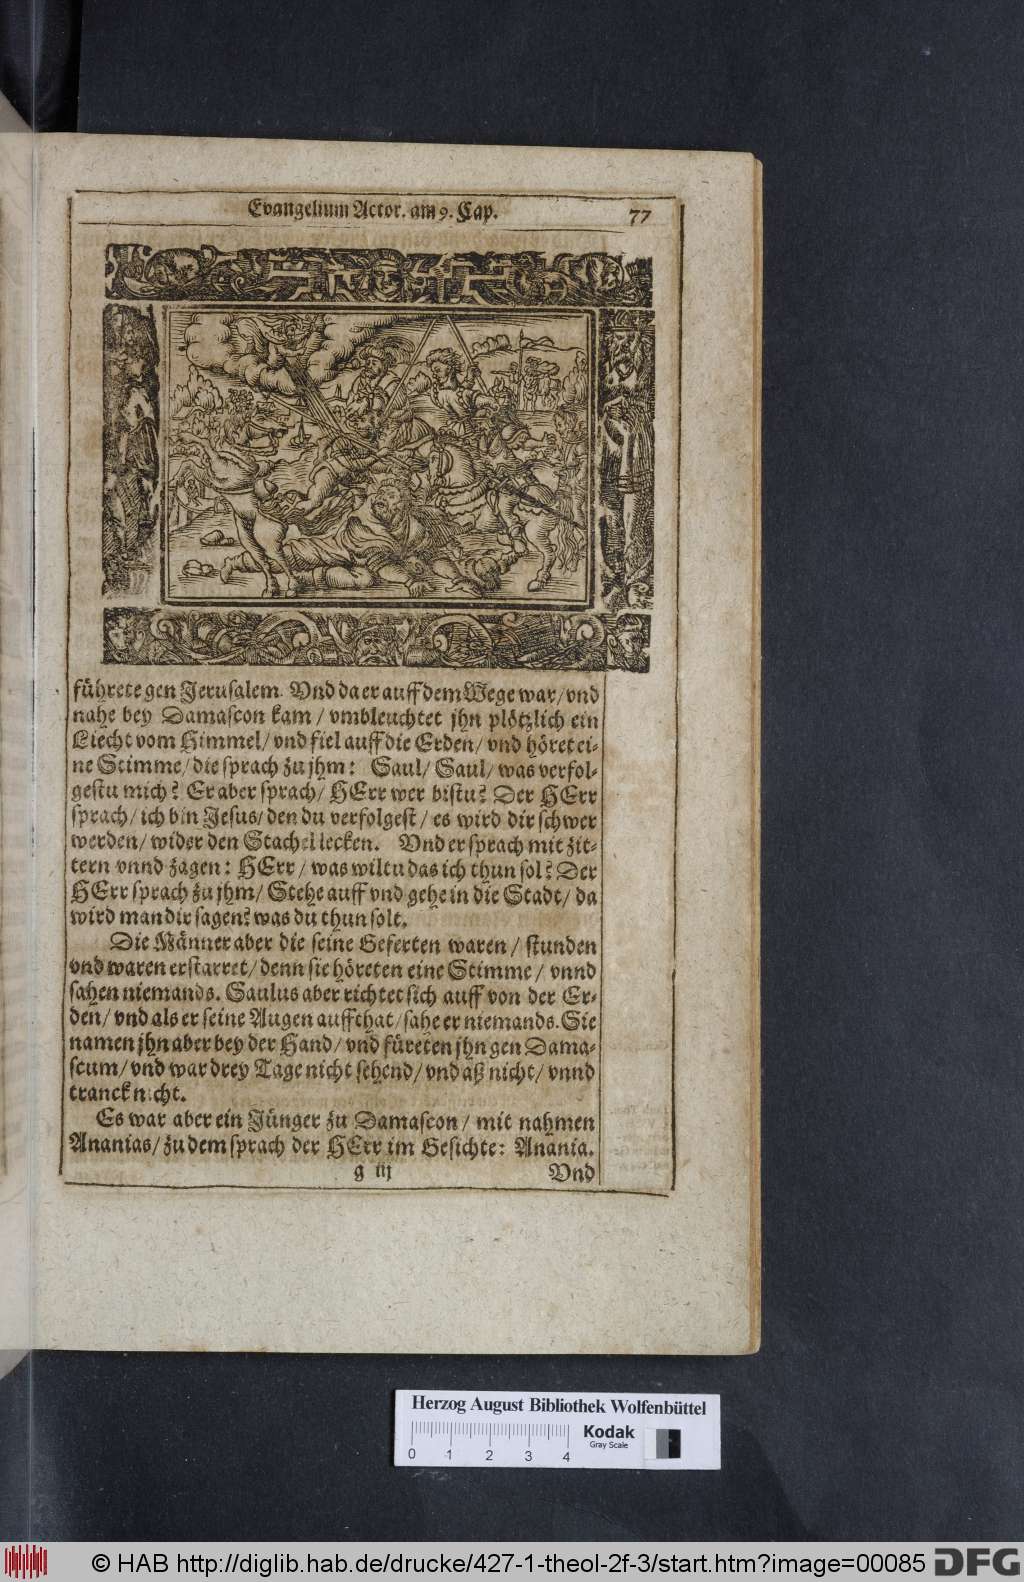 Evangelium Actor. am 9. Cap.
77
führete gen Jerusalem. Vnd da er auff dem Wege war/ vnd
nahe bey Damascon kam/ vmbleuchtet jhn plötzlich ein
Liecht vom Himmel/ vnd fiel auff die Erden/ vnd höret ei-
ne Stimme/ die sprach zu jhm: Saul/ Saul/ was verfol-
gestu mich? Er aber sprach/ HErr wer bistu? Der HErr
sprach/ ich bin Jesus/ den du verfolgest/ es wird dir schwer
werden/ wider den Stachel lecken. Vnd er sprach mit zit-
tern vnnd zagen: HErr/ was wiltu das ich thun sol? Der
HErr sprach zu jhm/ Stehe auff vnd gehe in die Stadt/ da
wird man dir sagen? was du thun solt.
Die Männer aber die seine Geferten waren/ stunden
vnd waren erstarret/ denn sie höreten eine Stimme/ vnnd
sahen niemands. Saulus aber richtet sich auff von der Er-
den/ vnd als er seine Augen auffthat/ sahe er niemands. Sie
namen jhn aber bey der Hand/ vnd füreten jhn gen Dama-
scum/ vnd war drey Tage nicht sehend/ vnd aß nicht/ vnnd
tranck nicht.
Es war aber ein Jünger zu Damascon/ mit nahmen
Ananias/ zu dem sprach der HErr im Gesichte: Anania.
g iij
Vnd
Herzog August Bibliothek Wolfenbüttel
Kodak
Gray Scale
0 1 2 3 4
© HAB http://diglib.hab.de/drucke/427-1-theol-2f-3/start.htm?image=00085
DFG